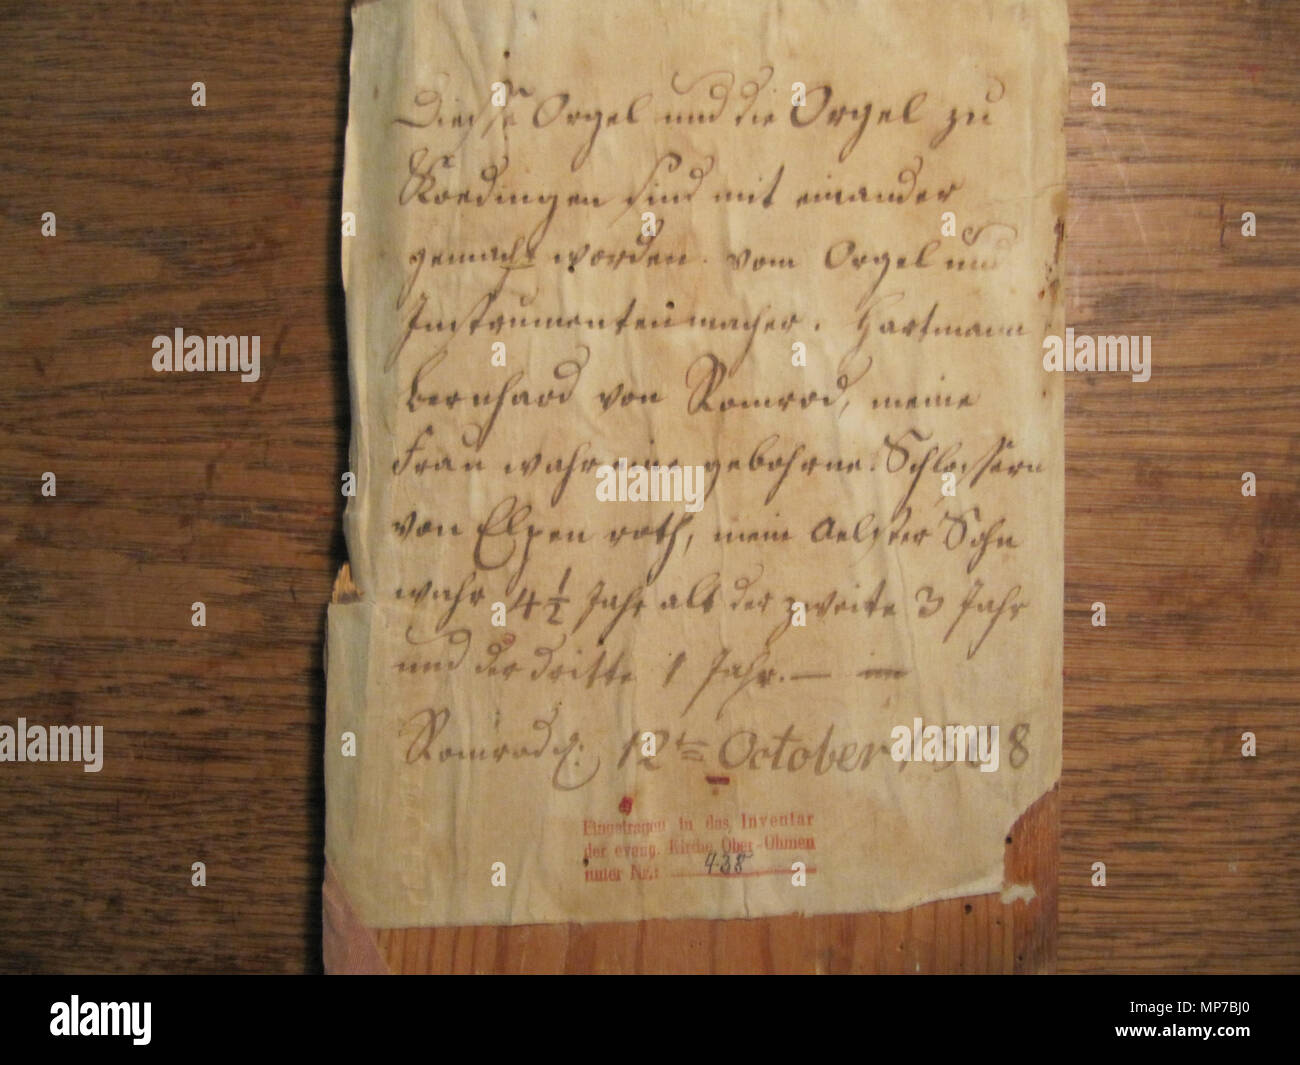 Diesse Orgel und die Orgel zu
Roedingen sind mit einander
gemacht worden. vom Orgel und
Instrumentenmacher. Hartmann
Bernhard von Romrod, meine
Frau wahr eine gebohrne Schlossern
von Elpenroth, mein Aelster Sohn
wahr 4 1/2 Jahr alt der zweite 3 Jahr
und der dritte 1 Jahr. —
Romrod d. 12ten October 1808
Eingetragen in das Inventar
der evang. Kirche Ober-Ohmen
unter Nr.: 438
alamy
alamy
alamy
alamy
alamy
Image ID: MP7BJ0
www.alamy.com